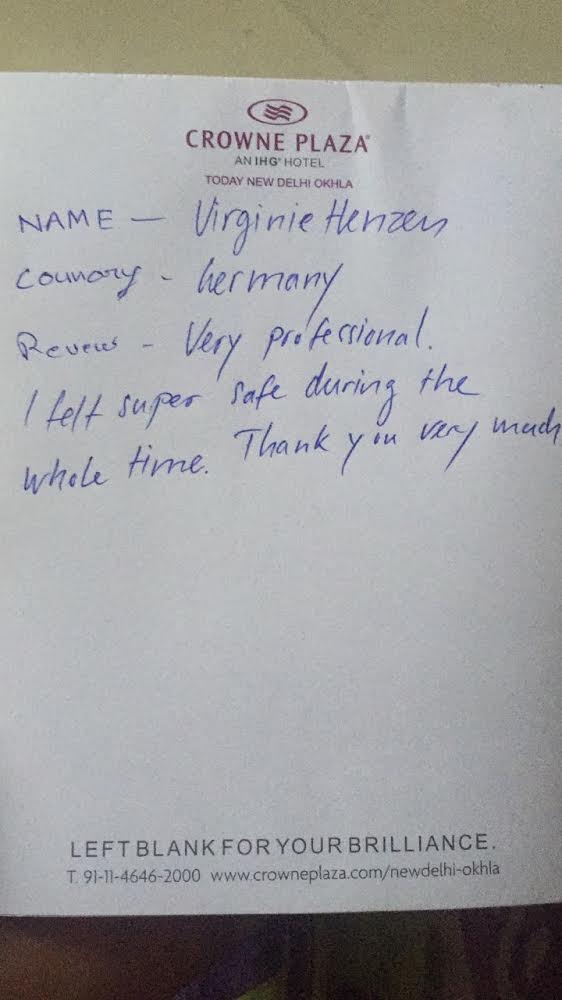 CROWNE PLAZA®
AN IHG® HOTEL
TODAY NEW DELHI OKHLA
NAME — Virginie Henzen
Country - Germany
Review - Very professional.
I felt super safe during the
whole time. Thank you very much
LEFT BLANK FOR YOUR BRILLIANCE.
T. 91-11-4646-2000 www.crowneplaza.com/newdelhi-okhla